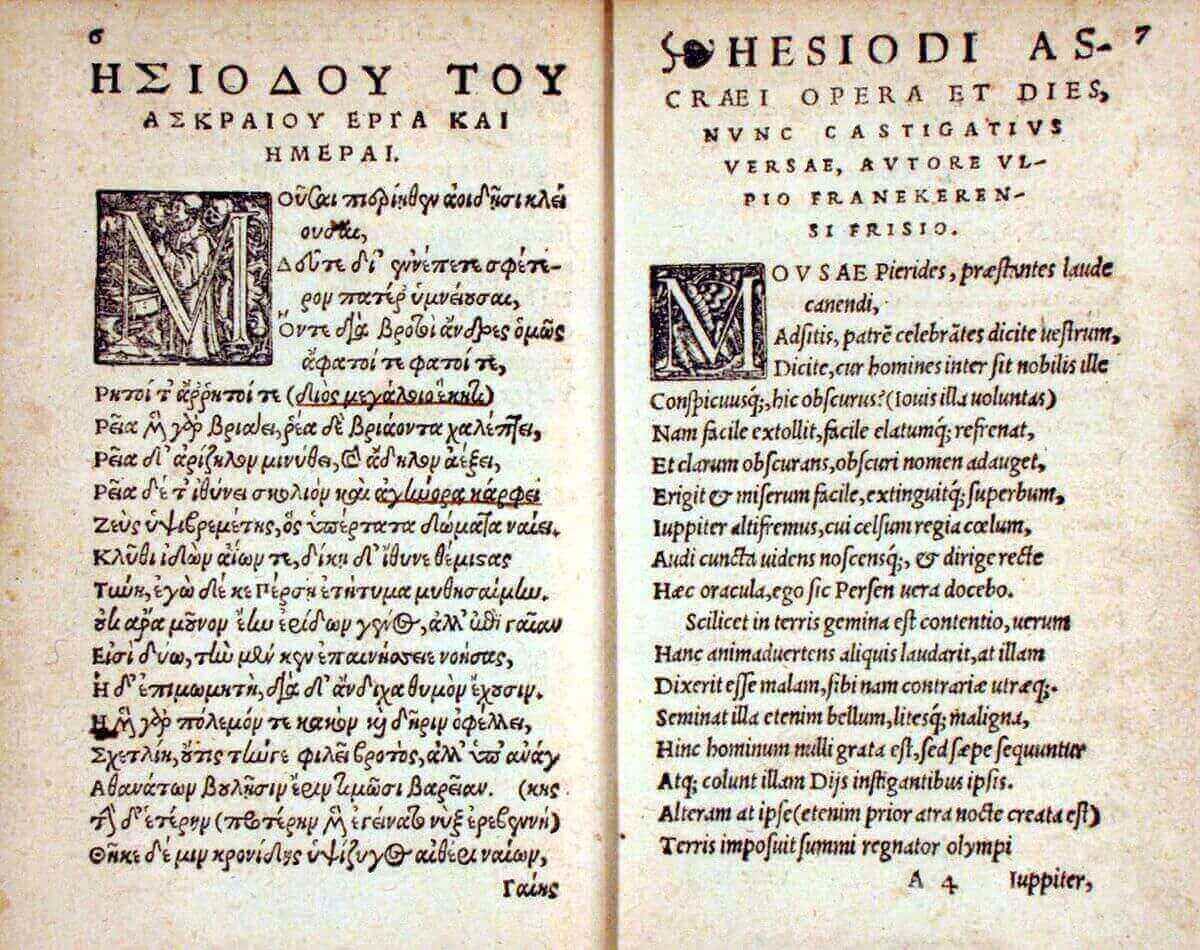 6
ΗΣΙΟΔΟΥ ΤΟΥ
ΑΣΚΡΑΙΟΥ ΕΡΓΑ ΚΑΙ
ΗΜΕΡΑΙ.
ΜΟῦσαι πιερίηθεν ἀοιδῇσι κλεί
ουσαι,
Δεῦτε δί' ἐννέπετε σφέτε-
ρον πατέρ' ὑμνείουσαι,
Ὅντε διὰ βροτοὶ ἄνδρες ὁμῶς
ἄφατοί τε φατοί τε,
Ρητοί τ' ἄῤῥητοί τε (διὸς μεγάλοιο ἕκητι)
Ρεῖα μὲν γὰρ βριάει, ῥέα δὲ βριάοντα χαλέπτει,
Ρεῖα δ' ἀρίζηλον μινύθει, καὶ ἄδηλον ἀέξει,
Ρεῖα δέ τ' ἰθύνει σκολιὸν καὶ ἀγήνορα κάρφει
Ζεὺς ὑψιβρεμέτης, ὃς ὑπέρτατα δώματα ναίει.
Κλῦθι ἰδὼν ἀΐων τε, δίκῃ δ' ἴθυνε θέμιστας
Τύνη, ἐγὼ δέ κε Πέρσῃ ἐτήτυμα μυθησαίμην.
οὐκ ἄρα μοῦνον ἔην ἐρίδων γένος, ἀλλ' ἐπὶ γαῖαν
Εἰσὶ δύω, τὴν μέν κεν ἐπαινήσειε νοήσας,
Ἡ δ' ἐπιμωμητὴ, διὰ δ' ἄνδιχα θυμὸν ἔχουσιν.
Ἡ μὲν γὰρ πόλεμόν τε κακὸν καὶ δῆριν ὀφέλλει,
Σχετλίη, οὔτις τήνγε φιλεῖ βροτὸς, ἀλλ' ὑπ' ἀνάγ
Ἀθανάτων βουλῇσιν ἔριν τιμῶσι βαρεῖαν. (κης
Τὴν δ' ἑτέρην (προτέρην μὲν ἐγείνατο νὺξ ἐρεβεννή)
Θῆκε δέ μιν κρονίδης ὑψίζυγος αἰθέρι ναίων,
Γαίης
7
HESIODI AS-
CRAEI OPERA ET DIES,
NVNC CASTIGATIVS
VERSAE, AVTORE VL-
PIO FRANEKEREN-
SI FRISIO.
MOVSAE Pierides, præstantes laude
canendi,
Adsitis, patrẽ celebrãtes dicite uestrum,
Dicite, cur homines inter sit nobilis ille
Conspicuusq;, hic obscurus? (Iouis illa uoluntas)
Nam facile extollit, facile elatumq; refrenat,
Et clarum obscurans, obscuri nomen adauget,
Erigit & miserum facile, extinguitq; superbum,
Iuppiter altifremus, cui celsum regia cœlum,
Audi cuncta uidens noscensq;, & dirige recte
Hæc oracula, ego sic Persen uera docebo.
Scilicet in terris gemina est contentio, uerum
Hanc animaduertens aliquis laudarit, at illam
Dixerit esse malam, sibi nam contrariæ utræq;.
Seminat illa etenim bellum, litesq; maligna,
Hinc hominum nulli grata est, sed sæpe sequuntur
Atq; colunt illam Dijs instigantibus ipsis.
Alteram at ipse (etenim prior atra nocte creata est)
Terris imposuit summi regnator olympi
A 4 Iuppiter,